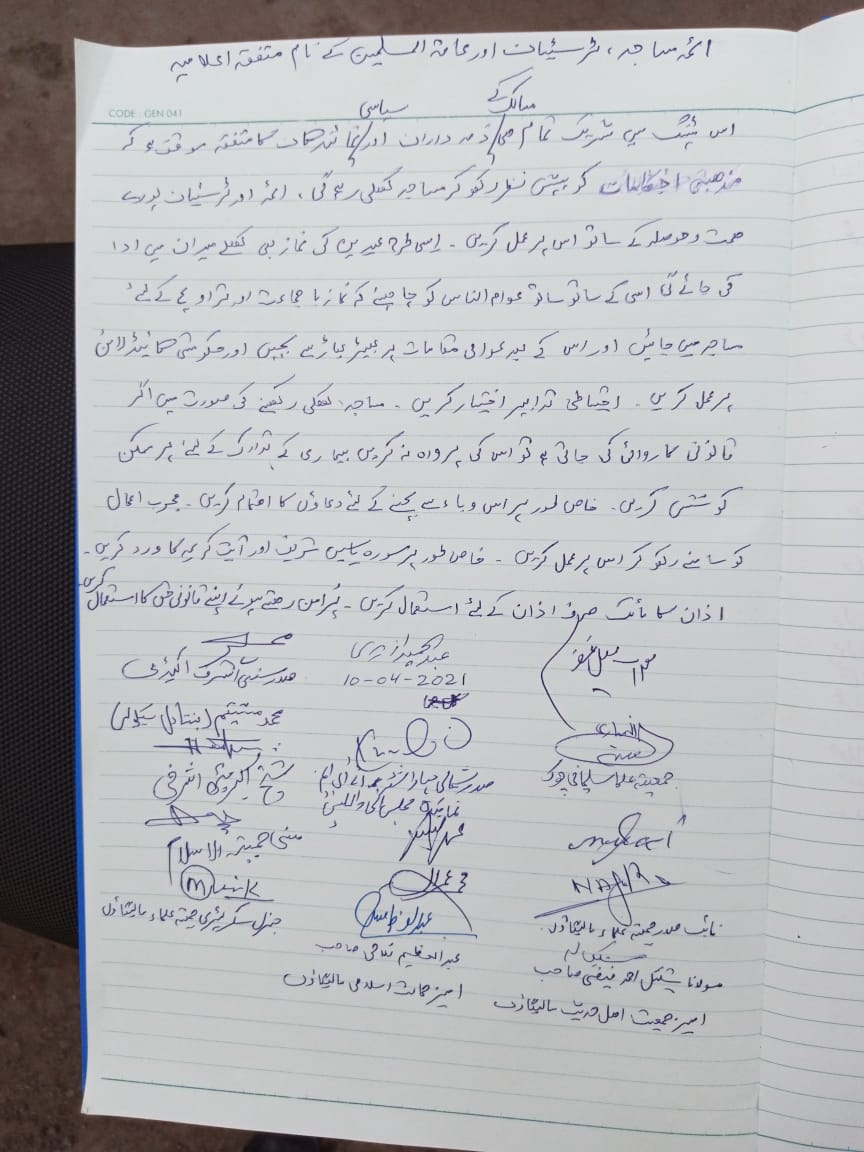 ائمہ مساجد، ٹرسٹیان اور عامۃ المسلمین کے نام متفقہ اعلامیہ
CODE : GEN 041
مسالک کے سیاسی
اس میٹنگ میں شریک تمام ہی ذمہ داران اور نمائندگان کا متفقہ موقف ہے کہ
مذھبی کو پیش نظر رکھ کر مساجد کھلی رہے گی، ائمہ اور ٹرسٹیان پورے
ہمت و حوصلہ کے ساتھ اس پر عمل کریں ۔ اسی طرح عیدین کی نماز بھی کھلے میدان میں ادا
کی جائے گی اسی کے ساتھ ساتھ عوام الناس کو چاہیئے کہ نماز با جماعت اور تراویح کے لئے
مساجد میں جائیں اور اس کے بعد عوامی مقامات پر بھیڑ بھاڑ سے بچیں اور حکومتی گائیڈ لائن
پر عمل کریں ۔ احتیاطی تدابیر اختیار کریں ۔ مساجد کھلی رکھنے کی صورت میں اگر
قانونی کاروائی کی جاتی ہے تو اس کی پرواہ نہ کریں بیماری کے تدارک کے لئے ہر ممکن
کوشش کریں۔ خاص طور پر اس وباء سے بچنے کے لئے دعاؤں کا اہتمام کریں ۔ مجرب اعمال
کو سامنے رکھ کر اس پر عمل کریں ۔ خاص طور پر سورہ یاسین شریف اور آیت کریمہ کا ورد کریں ۔
اذان کا مائک صرف اذان کے لئے استعمال کریں ۔ پُر امن رہتے ہوئے اپنے قانونی حق کا استعمال کریں۔
عبدالحمید ازہری
صدر سنی اشرف اکیڈمی
10-04-2021
محمد مستقیم (جنتا دل سیکولر)
جمعیۃ علماء سلیمانی چوک
صدر شمالی مہاراشٹر ایم آئی ایم
نمائندہ مجلس
شیخ اکبر اشرفی
سنی جمعیۃ الاسلام
نائب صدر جمعیۃ علماء مالیگاؤں
جنرل سکریٹری جمعیۃ علماء مالیگاؤں
عبدالعظیم فلاحی صاحب
امیر جماعت اسلامی مالیگاؤں
مولانا شکیل احمد فیضی صاحب
امیر جمعیت اہل حدیث مالیگاؤں